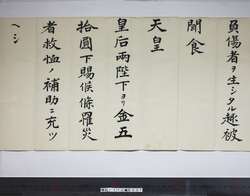 負傷者ヲ生シタル趣被
聞食
天皇
皇后兩陛下ヨリ金五
拾圓下賜候條罹災
者救恤ノ補助ニ充ツ
ヘシ